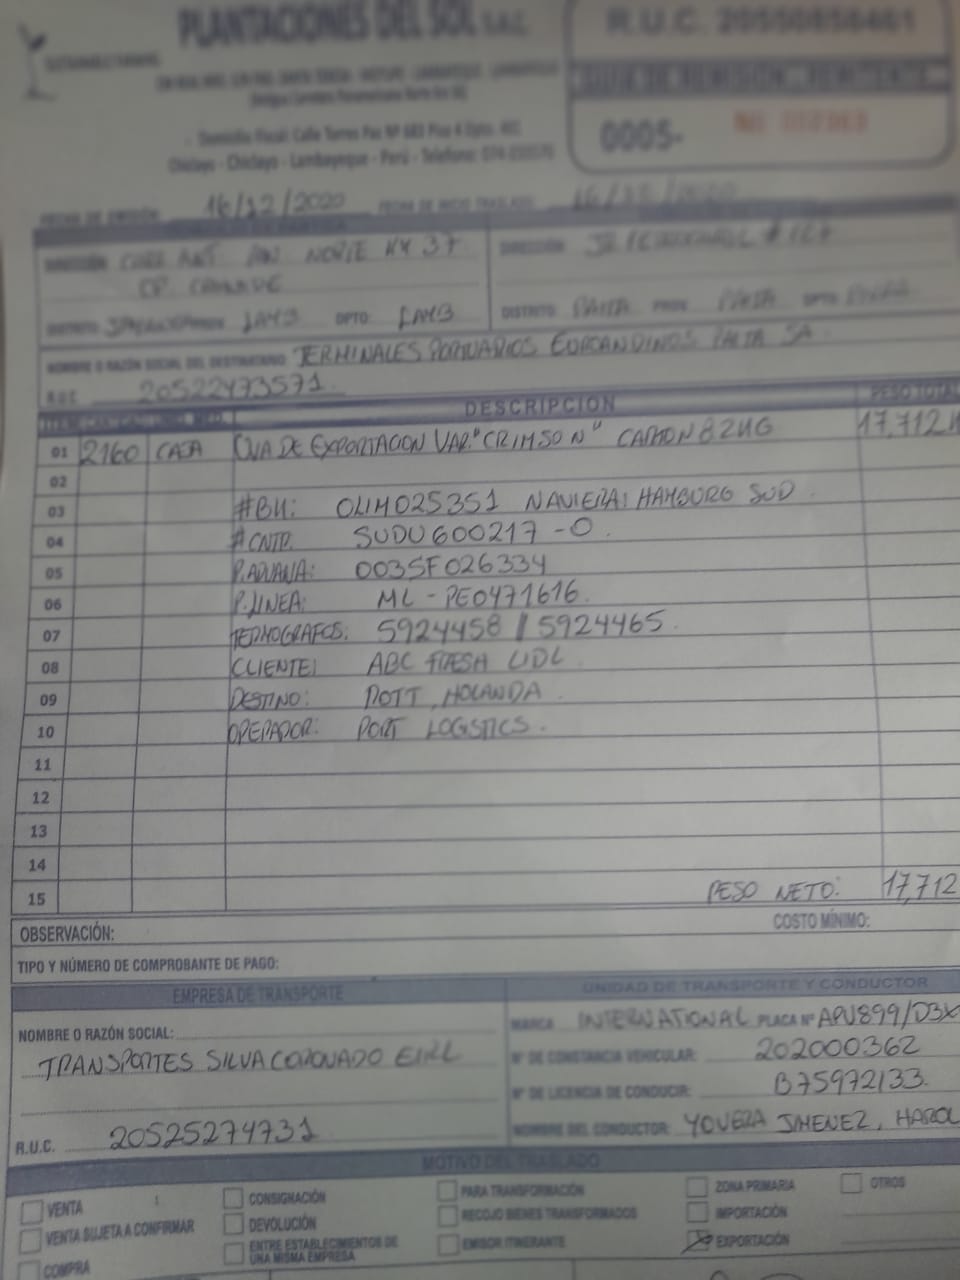 PLANTACIONES DEL SOL S.A.C.
R.U.C. 20550856461
GUIA DE REMISIÓN - REMITENTE
Domicilio Fiscal: Calle Torres Paz Nº 683 Piso 4 Dpto. 401
Chiclayo - Chiclayo - Lambayeque - Perú - Telefono:
0005- Nº
FECHA DE EMISIÓN 16/12/2020 FECHA DE INICIO TRASLADO 16/12/2020
DIRECCIÓN CARR ANT PAN NORTE KM 37 DIRECCIÓN
DISTRITO LAMB DPTO: LAMB DISTRITO PAITA PROV PAITA DPTO PIURA
NOMBRE O RAZÓN SOCIAL DEL DESTINATARIO TERMINALES PORTUARIOS EUROANDINOS PAITA SA.
R.U.C. 20522473571
DESCRIPCION PESO TOTAL
01 2160 CAJA UVA DE EXPORTACION VAR. "CRIMSON" CARTON 8.2KG 17,712
02
03 #BK: 0LIM025351 NAVIERA: HAMBURG SUD
04 # CNTR. SUDU600217-0
05 P.ADUANA: 0035F026334
06 P.LINEA: ML-PE0471616.
07 TERMOGRAFOS: 5924458 / 5924465
08 CLIENTE: ABC FRESH LIDL
09 DESTINO: ROTT, HOLANDA
10 OPERADOR: PORT LOGISTICS.
11
12
13
14
15 PESO NETO: 17,712
OBSERVACIÓN: COSTO MÍNIMO:
TIPO Y NÚMERO DE COMPROBANTE DE PAGO:
EMPRESA DE TRANSPORTE UNIDAD DE TRANSPORTE Y CONDUCTOR
NOMBRE O RAZÓN SOCIAL: MARCA INTERNATIONAL PLACA Nº APU899/D3X
TRANSPORTES SILVA CORONADO EIRL Nº DE CONSTANCIA VEHICULAR: 202000362
Nº DE LICENCIA DE CONDUCIR: B75972133.
R.U.C. 20525274731 NOMBRE DEL CONDUCTOR: YOVERA JIMENEZ, HAROL
MOTIVO DEL TRASLADO
VENTA CONSIGNACIÓN PARA TRANSFORMACIÓN ZONA PRIMARIA OTROS
VENTA SUJETA A CONFIRMAR DEVOLUCIÓN RECOJO BIENES TRANSFORMADOS IMPORTACIÓN
COMPRA ENTRE ESTABLECIMIENTOS DE UNA MISMA EMPRESA EMISOR ITINERANTE EXPORTACIÓN